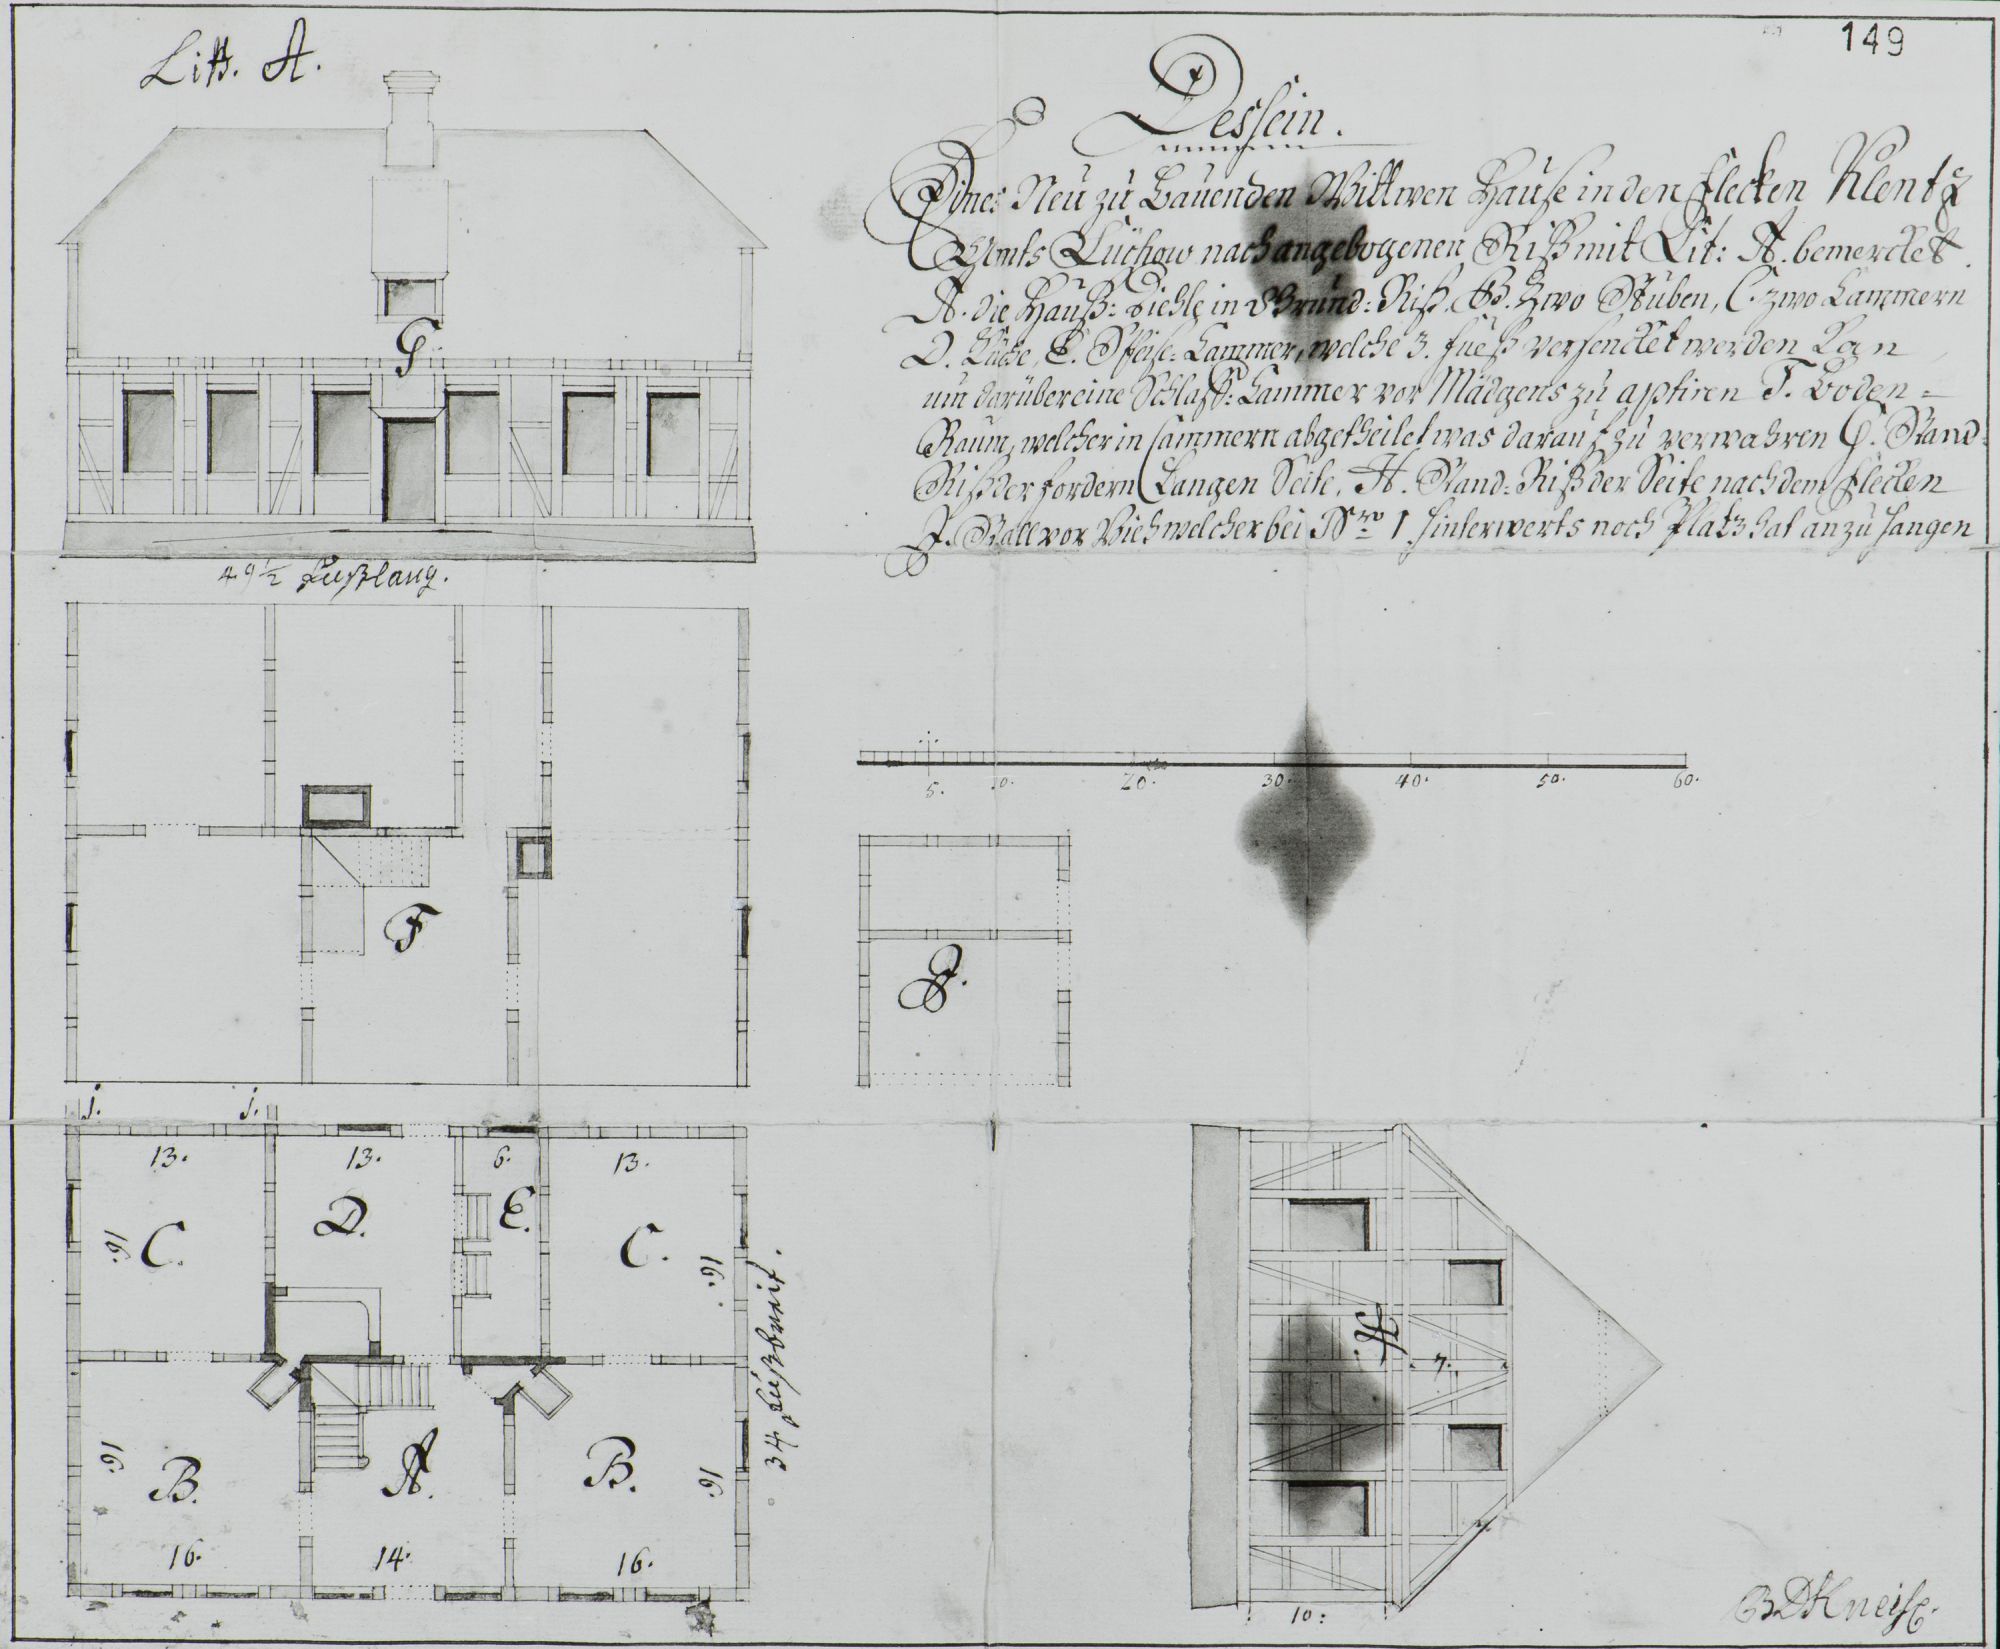 149
Litt. A.
Dessein.
Eines Neu zu bauenden Wittwen Hause in den Flecken Klentz
Ambts Lüchow nach angebogenen Riß mit Lit: A. bemercket.
A. die Hauß: Diehle in Grund: Riß. B. Zwo Stuben, C. zwo Cammern
D. Küche, E. Speise: Cammer, welche 3. Fueß versencket werden kan
um darüber eine Schlaff: Cammer vor Mädgens zu aptiren F. Boden=
Raum, welcher in Cammern abgetheilet was darauf zu verwahren G. Stand:
Riß der fordern Langen Seite, H. Stand: Riß der Seite nach dem Flecken
J. Stall vor Vieh welcher bei No 1. hinterwerts noch Platz hat anzuhangen
G.
49 1/2 Fußlang.
F.
5. 10. 20. 30. 40. 50. 60.
J.
j. j.
13. 13. 6. 13.
C. D. E. C.
16. 16.
34 Fußbreit.
B. A. B.
16. 16.
16. 14. 16.
H.
7.
10:
BDKneise.